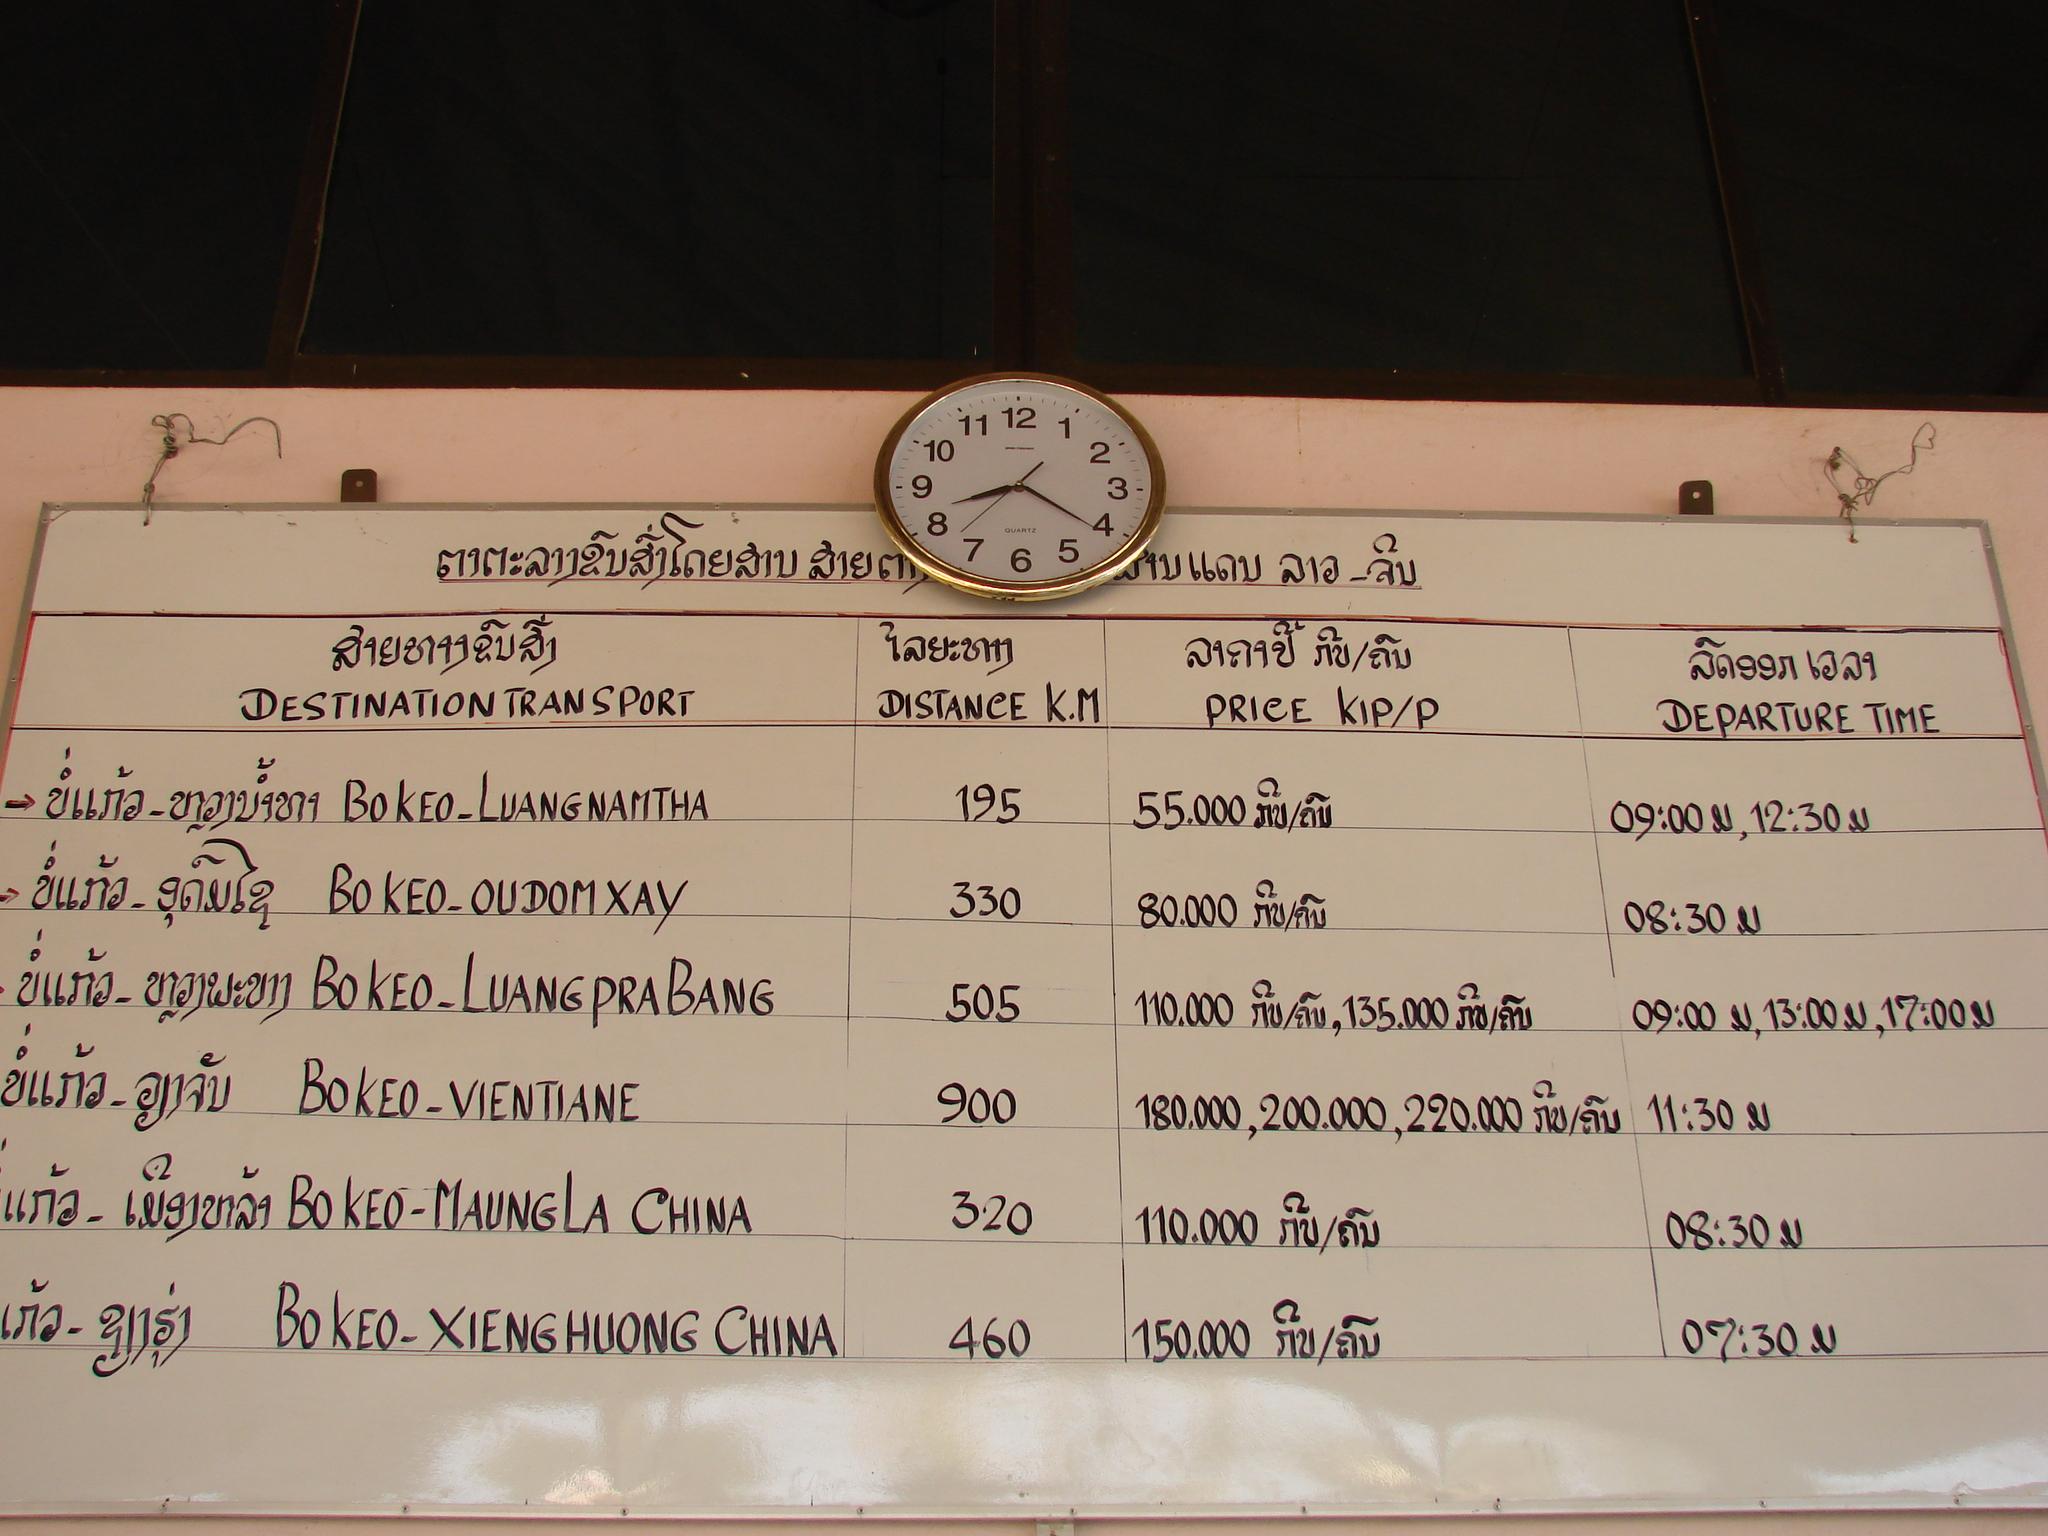 12
11 1
10 2
9 3
8 4
7 5
6
QUARTZ
ຕາຕະລາງຂົນສົ່ງໂດຍສານ ສາຍ ແດນ ລາວ-ຈີນ
ສາຍທາງຂົນສົ່ງ ໄລຍະທາງ ລາຄາປີ້ ກີບ/ຄົນ ລົດອອກ ເວລາ
DESTINATION TRANSPORT DISTANCE K.M PRICE KIP/P DEPARTURE TIME
→ ບໍ່ແກ້ວ-ຫຼວງນ້ຳທາ BOKEO-LUANGNAMTHA 195 55.000 ກີບ/ຄົນ 09:00 ມ, 12:30 ມ
→ ບໍ່ແກ້ວ-ອຸດົມໄຊ BOKEO-OUDOMXAY 330 80.000 ກີບ/ຄົນ 08:30 ມ
ບໍ່ແກ້ວ-ຫຼວງພະບາງ BOKEO-LUANGPRABANG 505 110.000 ກີບ/ຄົນ, 135.000 ກີບ/ຄົນ 09:00 ມ, 13:00 ມ, 17:00 ມ
ບໍ່ແກ້ວ-ວຽງຈັນ BOKEO-VIENTIANE 900 180.000, 200.000, 220.000 ກີບ/ຄົນ 11:30 ມ
ແກ້ວ-ເມືອງຫລ້າ BOKEO-MAUNGLA CHINA 320 110.000 ກີບ/ຄົນ 08:30 ມ
ແກ້ວ-ຊຽງຮຸ່ງ BOKEO-XIENGHUONG CHINA 460 150.000 ກີບ/ຄົນ 07:30 ມ